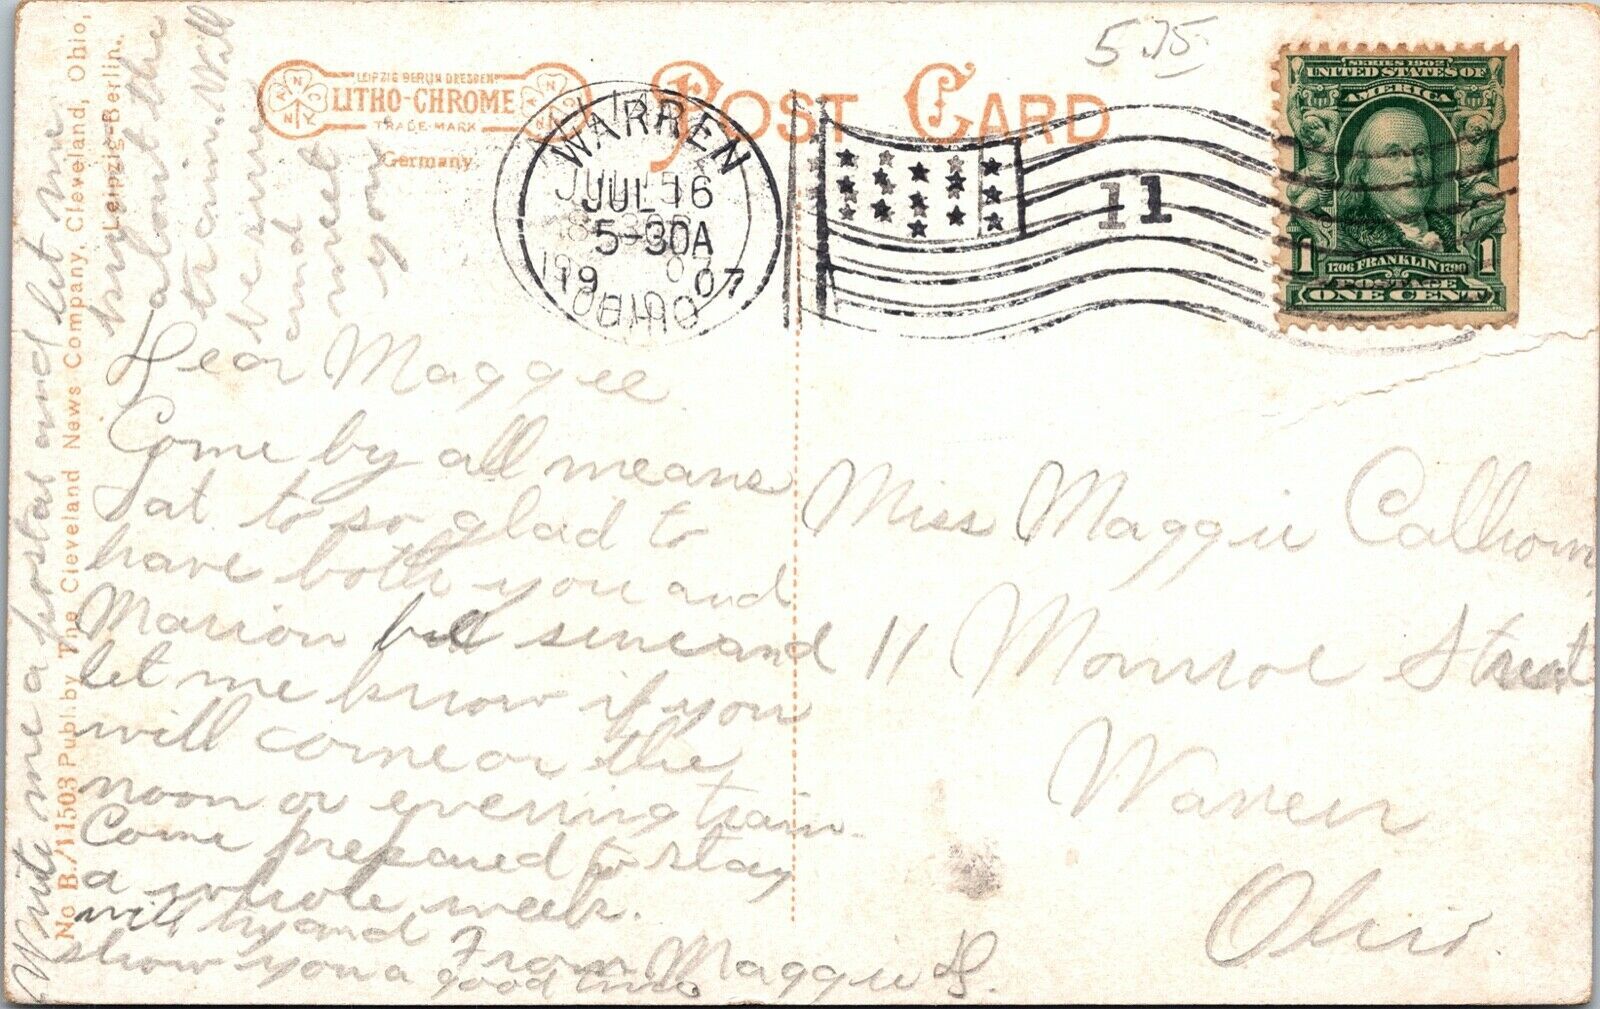 5.75
LEIPZIG BERLIN DRESDEN
LITHO-CHROME
TRADE-MARK
Germany.
POST CARD
WARREN
JUL 16
5-30A
1907
OHIO
11
SERIES 1902
UNITED STATES OF
AMERICA
1 1706 FRANKLIN 1790 1
POSTAGE
ONE CENT
Dear Maggie
Come by all means
Sat to so glad to
have both you and
Marion be sure and
let me know if you
will come on the
noon or evening train.
Come prepared to stay
a whole week.
will try and
show you a good time
From Maggie S.
Write me a postal and let me
about the
train. Will
be sure
and
meet
you
Miss Maggie Calhoun
11 Monroe Street
Warren
Ohio.
No B./11503 Publ. by The Cleveland News Company, Cleveland, Ohio,
Leipzig-Berlin.